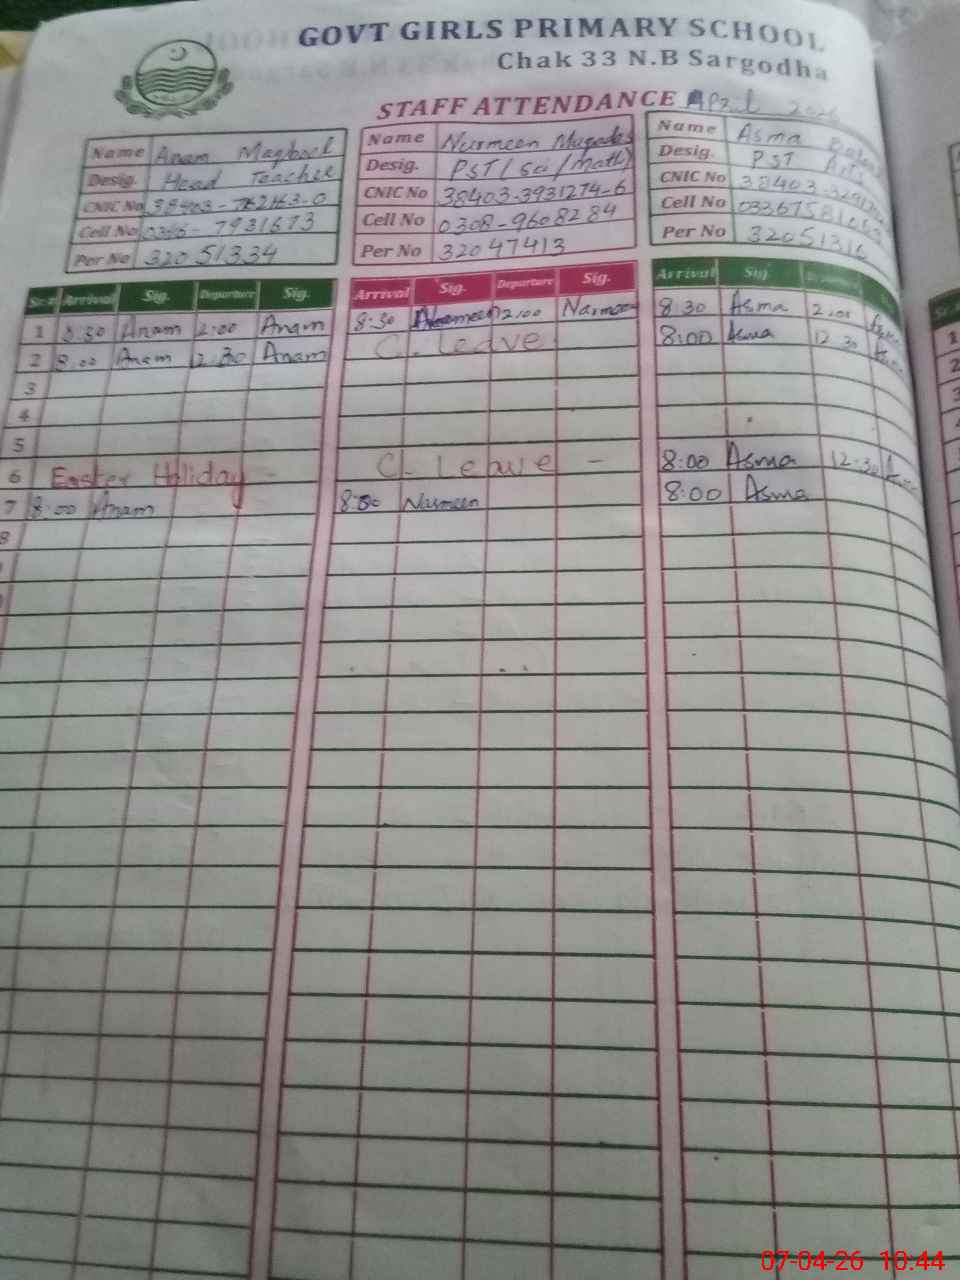 GOVT GIRLS PRIMARY SCHOOL
Chak 33 N.B Sargodha
STAFF ATTENDANCE April 2026
Name Anam Maqbool
Desig. Head Teacher
CNIC No
Cell No 7931673
Per No 32051334
Name Nurmeen Muqadas
Desig. PST/Sci/Math)
CNIC No 38403-3931274-6
Cell No 0308-9608284
Per No 32047413
Name Asma
Desig. PST Arts
CNIC No 38403
Cell No
Per No 32051316
Sr.# Arrival Sig. Departure Sig. Arrival Sig. Departure Sig. Arrival Sig
1 8:30 Anam 12:00 Anam 8:30 12:00 8:30 Asma
2 8:00 Anam 12:30 Anam C. Leave 8:00 Asma 12 30
3
4
5
6 Easter Holiday - C. Leave - 8:00 Asma 12:30
7 8:00 Anam 8:00 Nurmeen 8:00 Asma
8
07-04-26 10:44